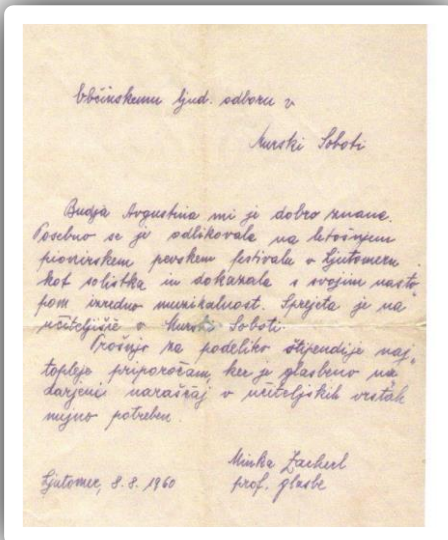 Občinskemu ljud. odboru v
Murski Soboti
Budja Avgustina mi je dobro znana.
Posebno se je odlikovala na letošnjem
pionirskem pevskem festivalu v Ljutomeru
kot solistka in dokazala s svojim nasto-
pom izredno muzikalnost. Sprejeta je na
učiteljišče v Murski Soboti.
Prošnjo za podelitev štipendije naj-
topleje priporočam, ker je glasbeno na-
darjeni naraščaj v učiteljskih vrstah
nujno potreben.
Minka Zacherl
Ljutomer, 8. 8. 1960
prof. glasbe